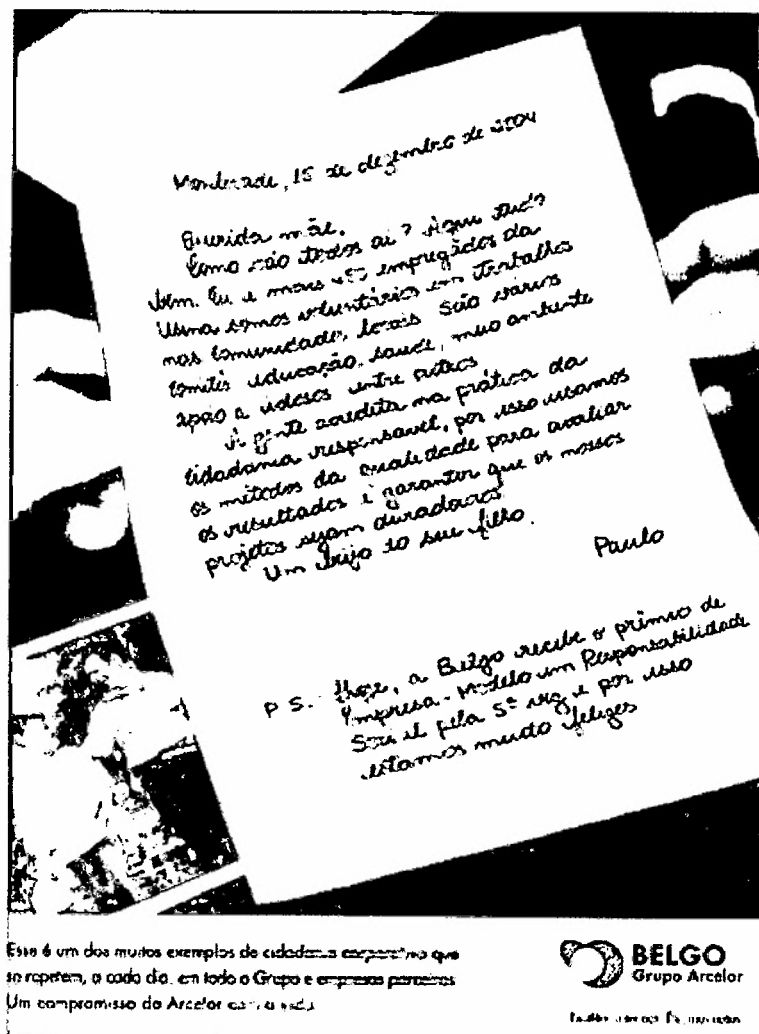 Monlevade, 15 de dezembro de 2004
Querida mãe,
Como vão todos aí? Aqui tudo
bem. Eu e mais 450 empregados da
Usina somos voluntários em trabalhos
nas comunidades locais. São vários
comitês educação, saúde, meio ambiente
apoio a idosos entre outros
A gente acredita na prática da
cidadania responsável, por isso usamos
os métodos da qualidade para avaliar
os resultados e garantir que os nossos
projetos sejam duradouros!
Um beijo do seu filho.
Paulo
P S. Hoje, a Belgo recebe o prêmio de
Empresa-Modelo em Responsabilidade
Social pela 5ª vez e por isso
estamos muito felizes
Esse é um dos muitos exemplos de cidadania corporativa que
se repetem, a cada dia, em todo o Grupo e empresas parceiras
Um compromisso da Arcelor com a vida
BELGO
Grupo Arcelor